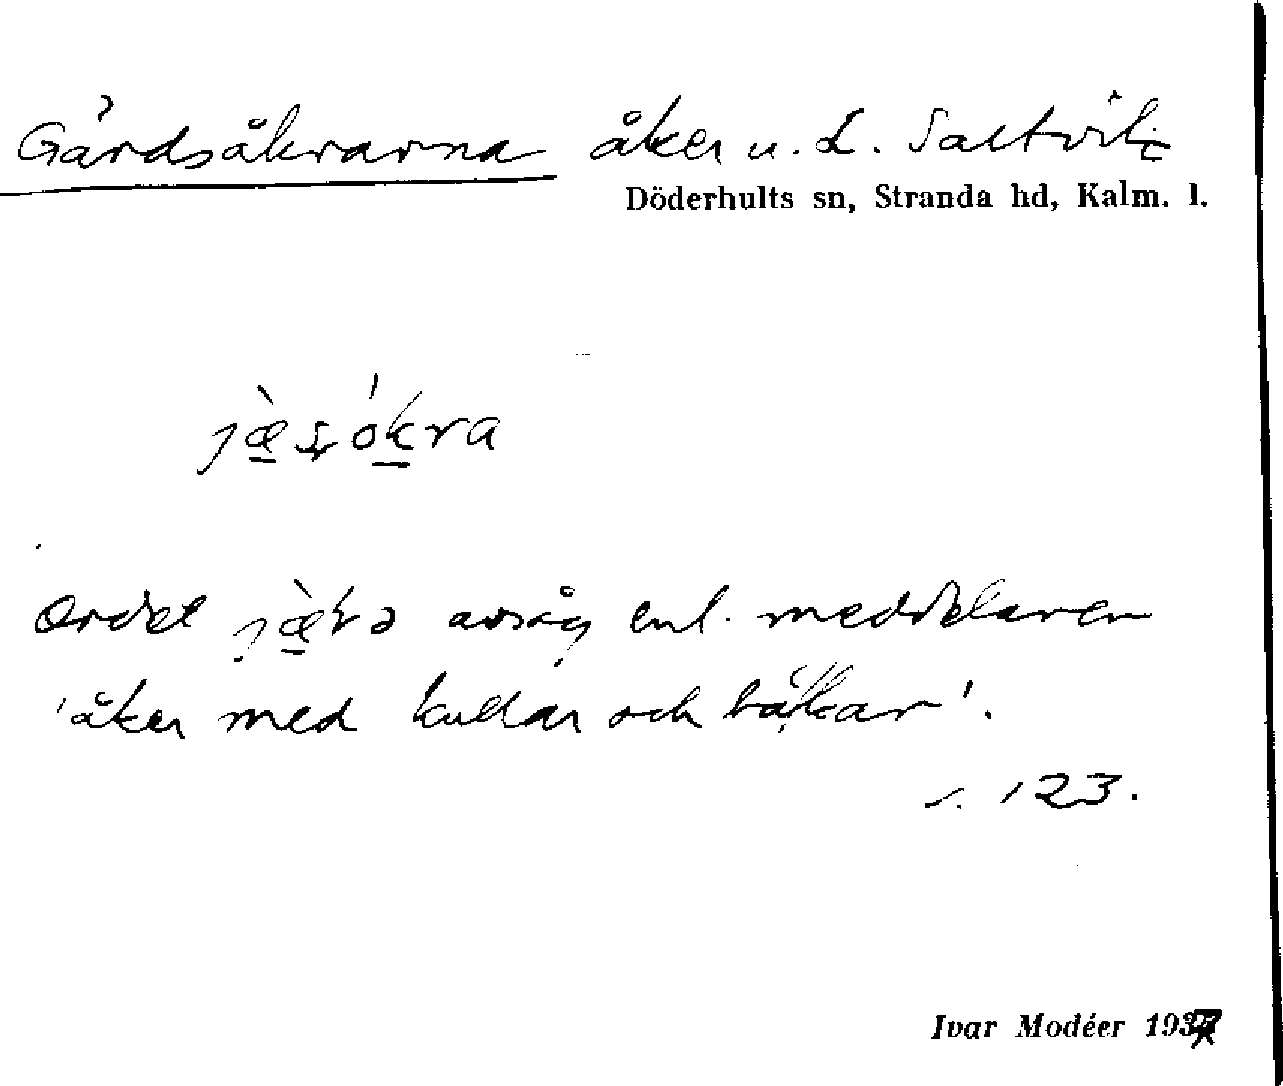 Gårdsåkrarna åker u. L. Saltvik
Döderhults sn, Stranda hd, Kalm. l.
jæ̀sókra
Ordet avsåg enl. meddelaren
'åker med kullar och backar'.
s. 123.
Ivar Modéer 1937